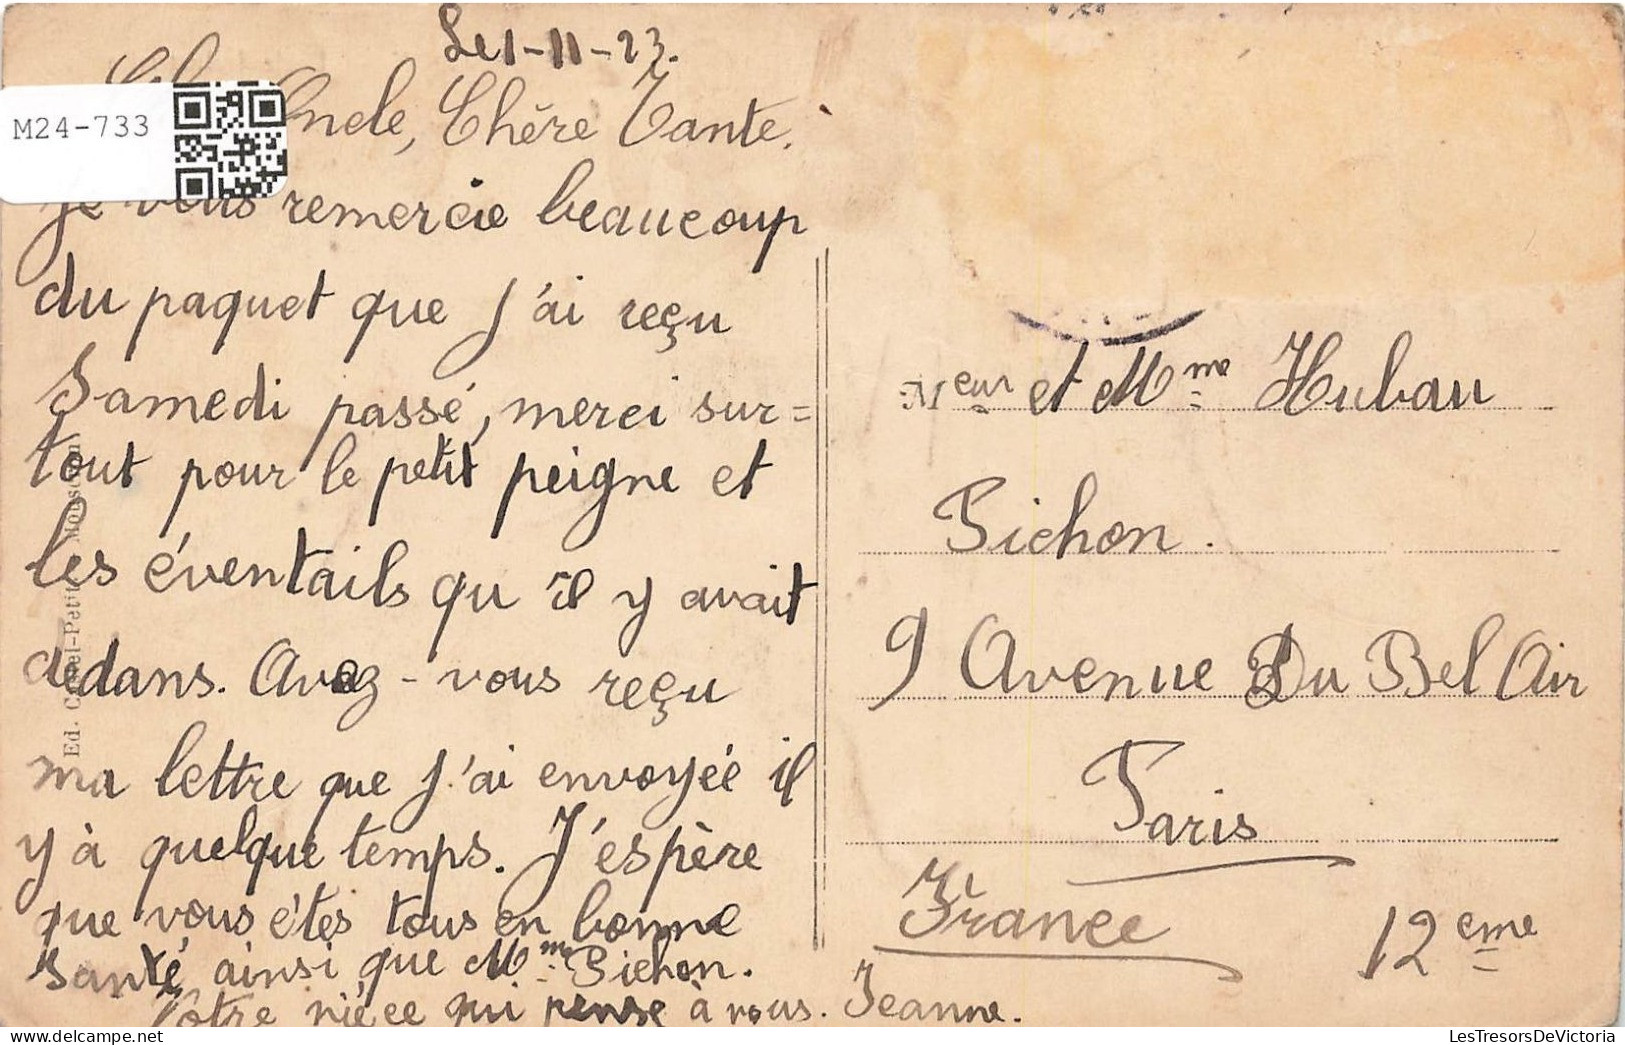 Le 1-11-23.
Oncle, Chère Tante.
M24-733
Je vous remercie beaucoup
du paquet que j'ai reçu
Samedi passé, merci sur=
tout pour le petit peigne et
les éventails qu il y avait
dedans. Avez-vous reçu
ma lettre que j'ai envoyée il
y à quelque temps. J'espère
que vous étes tous en bonne
santé, ainsi que Mme Pichon.
Votre nièce qui pense à vous. Jeanne.
Ed. -Petit
Meur et Mme Hubau
Pichon.
9 Avenue Du Bel Air
Paris
France 12eme
LesTresorsDeVictoria